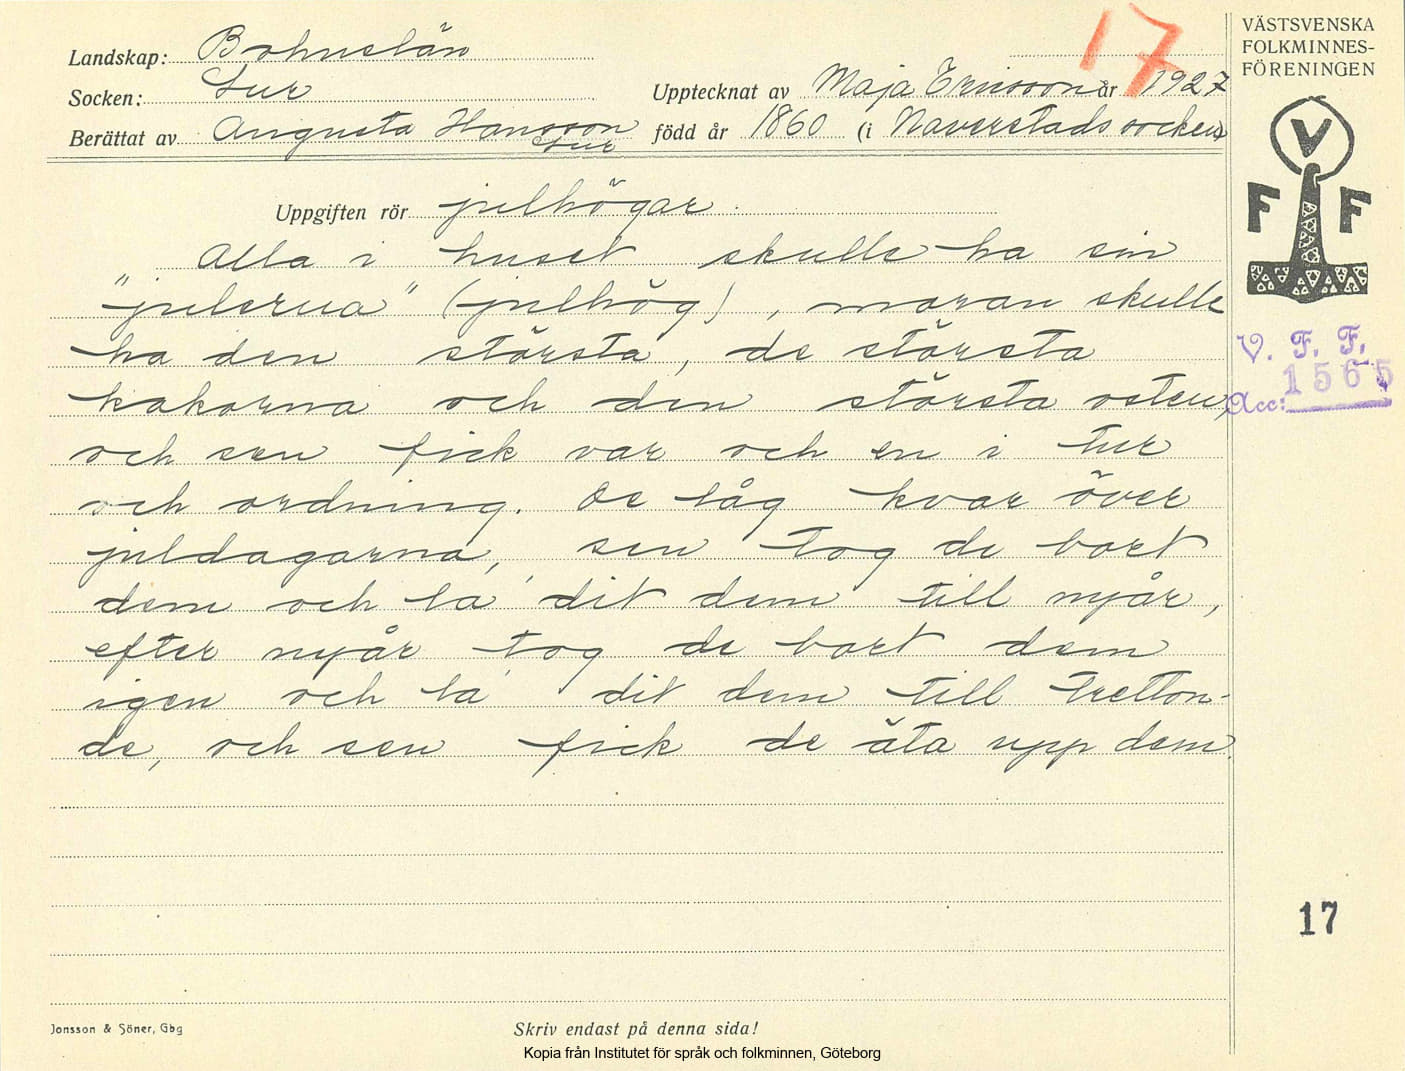 17
VÄSTSVENSKA
FOLKMINNES-
FÖRENINGEN
Landskap: Bohuslän
Socken: Lur
Upptecknat av Maja Ericsson år 1927
Berättat av Augusta Hansson
Lur
född år 1860 (i Naverstads socken)
V
F F
Uppgiften rör julhögar
Alla i huset skulle ha sin
"julerua" (julhög), moran skulle
ha den största, de största
kakorna och den största osten,
och sen fick var och en i tur
och ordning. De låg kvar över
juldagarna, sen tog de bort
dem och la' dit dem till nyår,
efter nyår tog de bort dem
igen och la' dit dem till tretton-
de, och sen fick de äta upp dem.
V. F. F.
Acc: 1565
17
Jonsson & Söner, Gbg
Skriv endast på denna sida!
Kopia från Institutet för språk och folkminnen, Göteborg